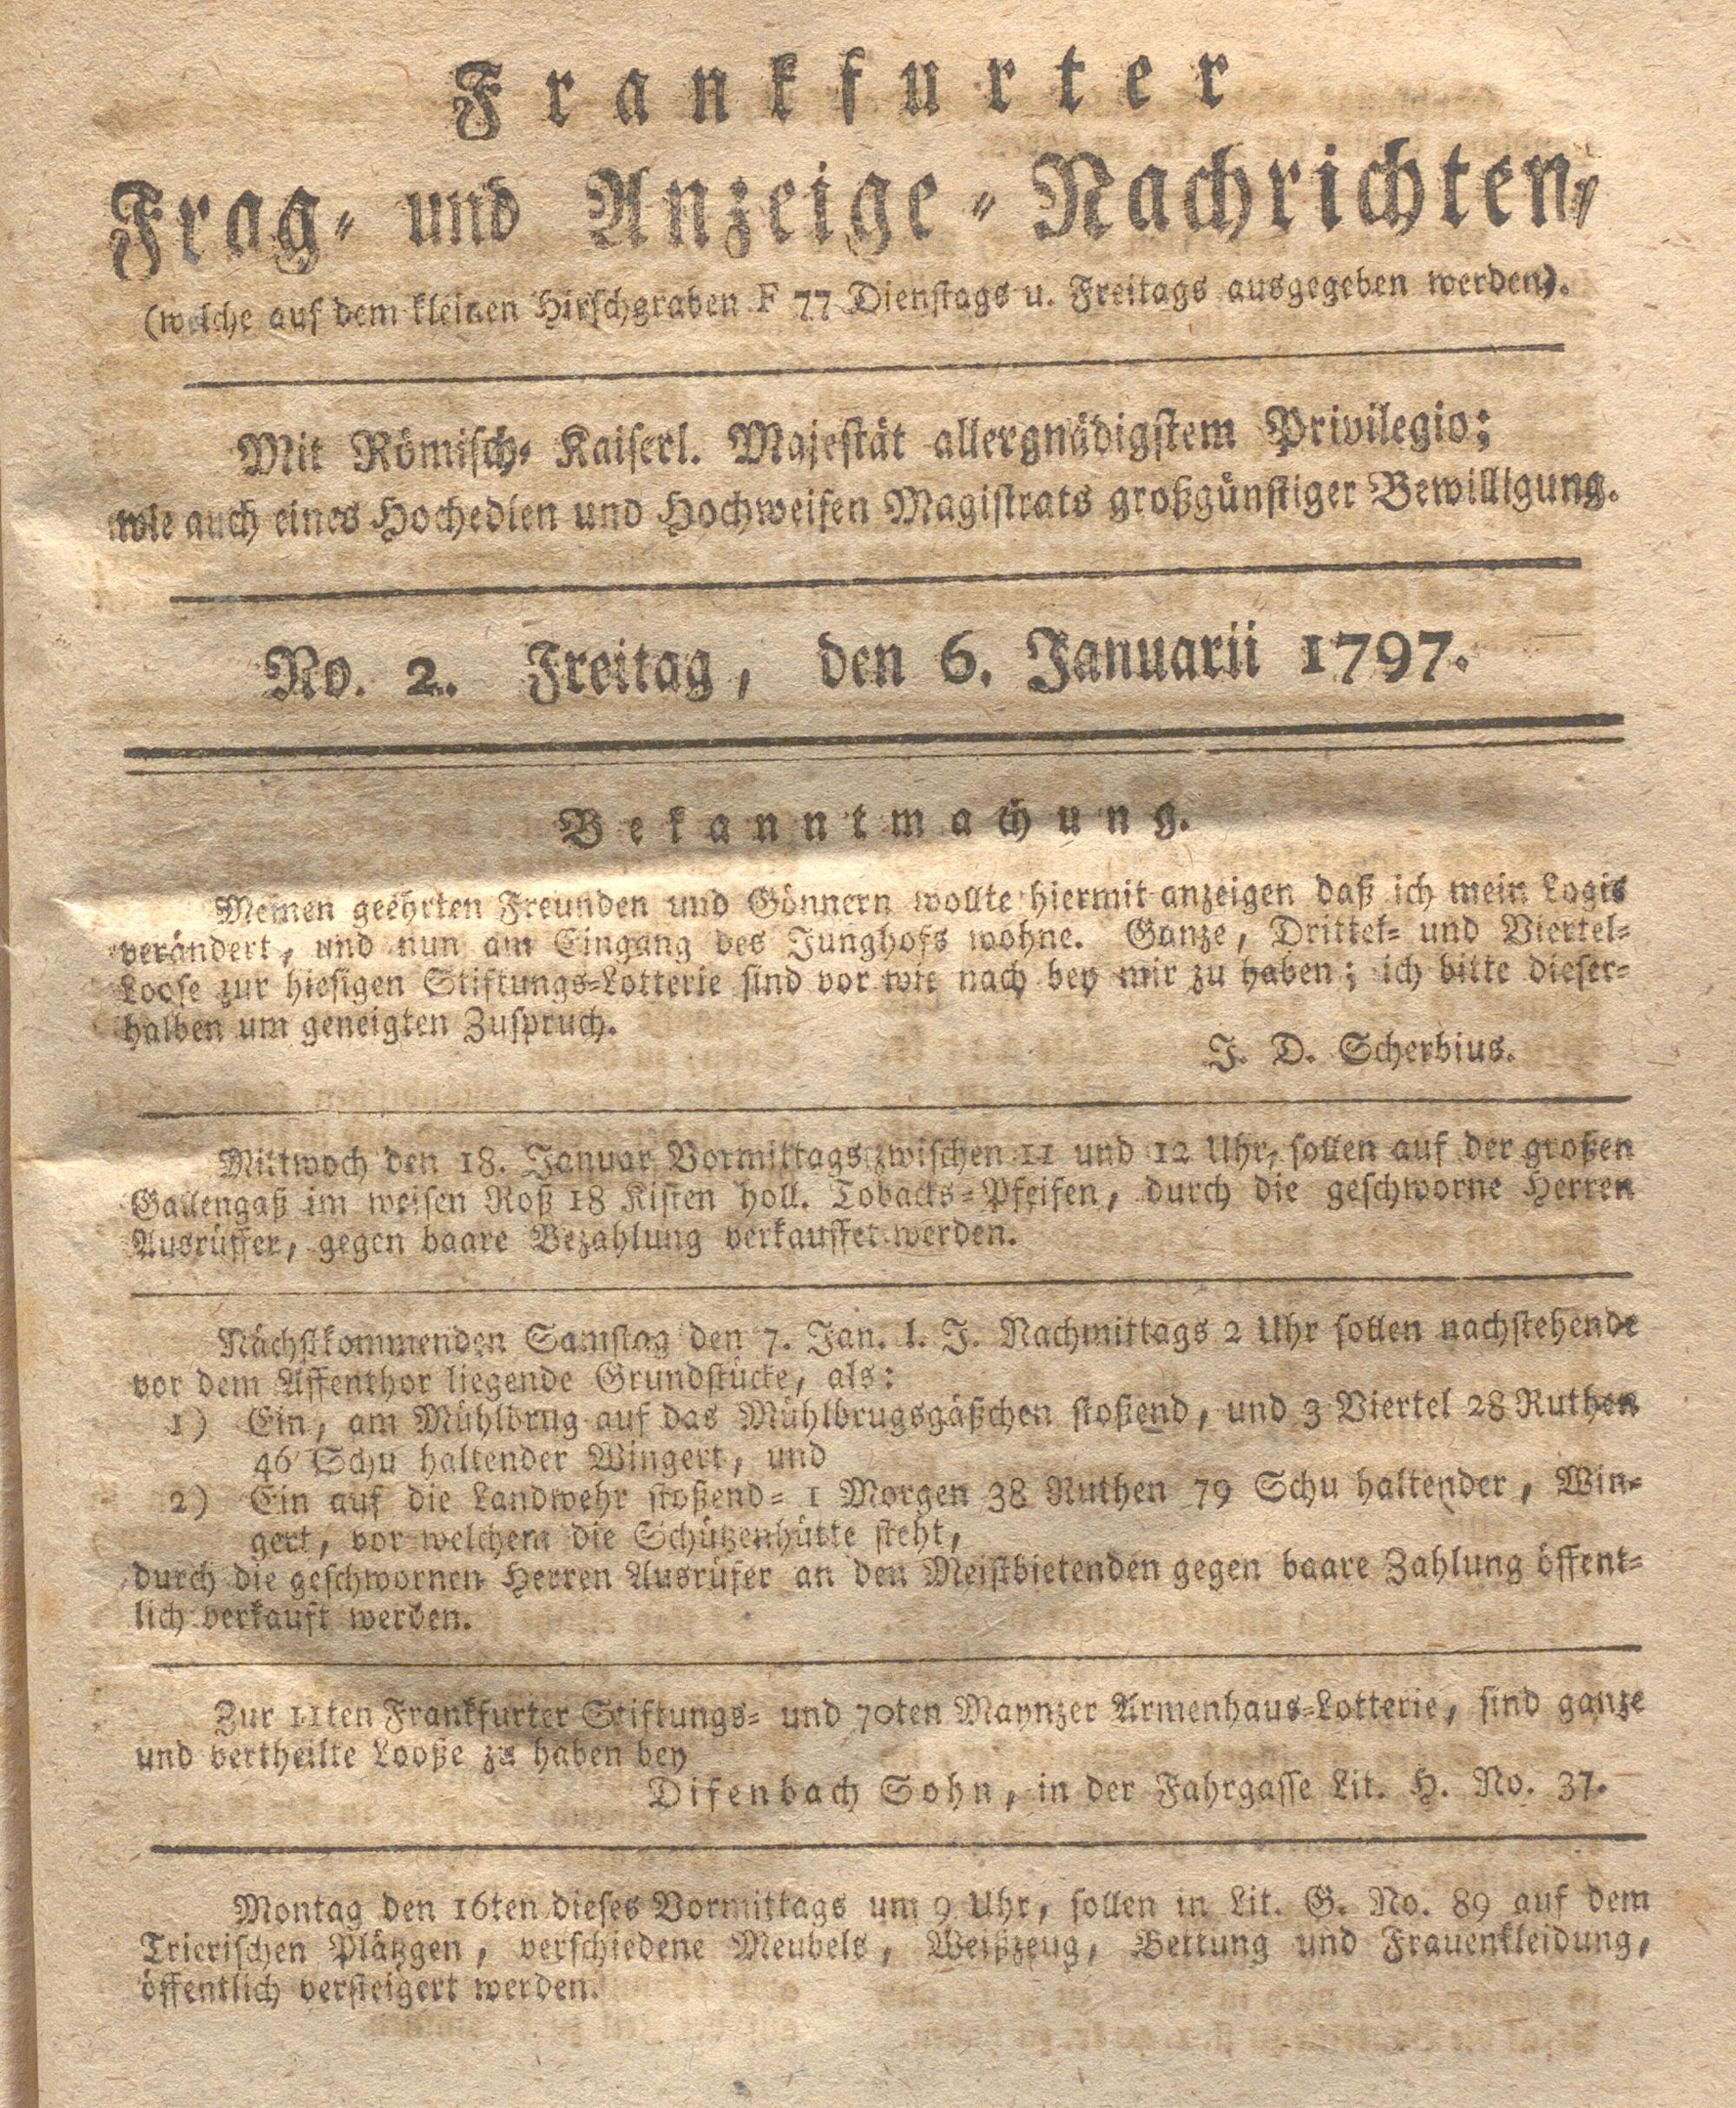 Frankfurter
Frag- und Anzeige-Nachrichten,
(welche auf dem kleinen Hirschgraben F 77 Dienstags u. Freitags ausgegeben werden).
Mit Römisch- Kaiserl. Majestät allergnädigstem Privilegio;
wie auch eines Hochedlen und Hochweisen Magistrats großgünstiger Bewilligung.
No. 2. Freitag, den 6. Januarii 1797.
Bekanntmachung.
Meinen geehrten Freunden und Gönnern wollte hiermit anzeigen daß ich mein Logis
verändert, und nun am Eingang des Junghofs wohne. Ganze, Drittel- und Viertel-
Loose zur hiesigen Stiftungs-Lotterie sind vor wie nach bey mir zu haben; ich bitte dieser-
halben um geneigten Zuspruch.
J. D. Scherbius.
Mittwoch den 18. Januar Vormittags zwischen 11 und 12 Uhr, sollen auf der großen
Gallengaß im weisen Roß 18 Kisten holl. Tobacks-Pfeifen, durch die geschworne Herren
Ausrüffer, gegen baare Bezahlung verkauffet werden.
Nächstkommenden Samstag den 7. Jan. l. J. Nachmittags 2 Uhr sollen nachstehende
vor dem Affenthor liegende Grundstücke, als:
1) Ein, am Mühlbrug auf das Mühlbrugsgäßchen stoßend, und 3 Viertel 28 Ruthen
46 Schu haltender Wingert, und
2) Ein auf die Landwehr stoßend- 1 Morgen 38 Ruthen 79 Schu haltender, Win-
gert, vor welchem die Schützenhütte steht,
durch die geschwornen Herren Ausrüfer an den Meistbietenden gegen baare Zahlung öffent-
lich verkauft werden.
Zur 11ten Frankfurter Stiftungs- und 70ten Maynzer Armenhaus-Lotterie, sind ganze
und vertheilte Looße zu haben bey
Difenbach Sohn, in der Fahrgasse Lit. H. No. 37.
Montag den 16ten dieses Vormittags um 9 Uhr, sollen in Lit. G. No. 89 auf dem
Trierischen Plätzgen, verschiedene Meubels, Weißzeug, Bettung und Frauenkleidung,
öffentlich versteigert werden.